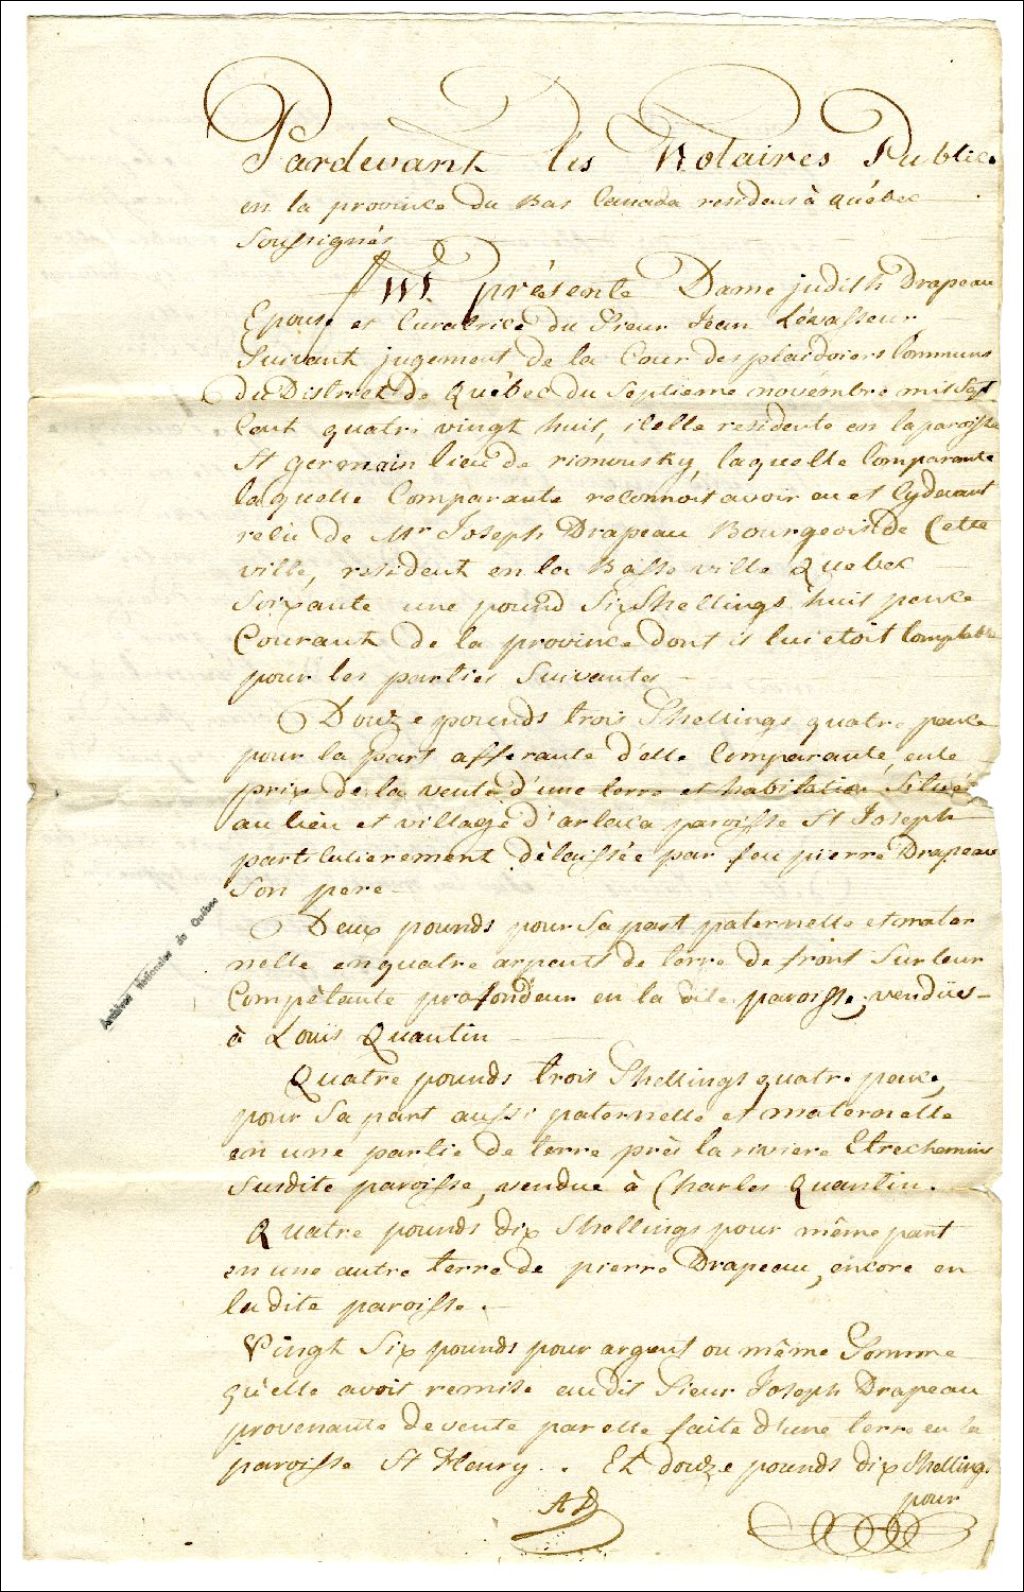 Pardevant les Notaires Publics
en la province du Bas Canada residens à québec
Soussignés
Fut présente Dame judith Drapeau
Epouse et Curatrice du Sieur Jean Lévasseur,
Suivant jugement de la Cour des plaidoiers Communs
du District de Québec du Septieme novémbre mil Sept
Cent quatre vingt huit, icelle residente en la paroisse
St germain lieu de rimousky, laquelle Comparante
laquelle Comparante reconnoit avoir eu et Cydevant
reçû de Mr Joseph Drapeau Bourgeois de Cette
ville, resident en la Basse ville Quebec
Soixante une pound Six Shellings huit pence
Courant de la province dont il lui etoit Comptable
pour les parties Suivantes
Douze pounds trois Shellings quatre pence
pour la part afferante d'elle Comparante, en le
prix de la vente d'une terre et habitation Située
au lieu et village d'arlaca paroisse St Joseph
particulierement délaissée par feu pierre Drapeau
Son pere
Deux pounds pour Sa part paternelle et mater
nelle en quatre arpents de terre de front Sur leur
Compètante profondeur en la dite paroisse, vendües
à Louïs Quantin
Quatre pounds trois Shellings quatre pence,
pour Sa part aussi paternelle et maternelle
en une partie de terre près la riviere Etrechemins
Susdite paroisse, vendue à Charles Quantin.
Quatre pounds dix Shellings pour même part
en une autre terre de pierre Drapeau, encore en
la dite paroisse.
Vingt Six pounds pour argent ou même Somme
qu'elle avoit remise audit Sieur Joseph Drapeau
provenante de vente par elle faite d'une terre en la
paroisse St Henry. Et douze pounds dix Shellings
pour
AD
Archives Nationales de Québec